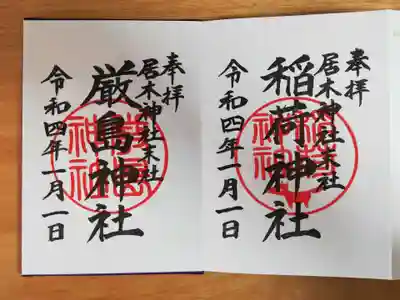 奉拝
居木神社末社
稲荷神社
令和四年一月一日
奉拝
居木神社末社
厳島神社
令和四年一月一日